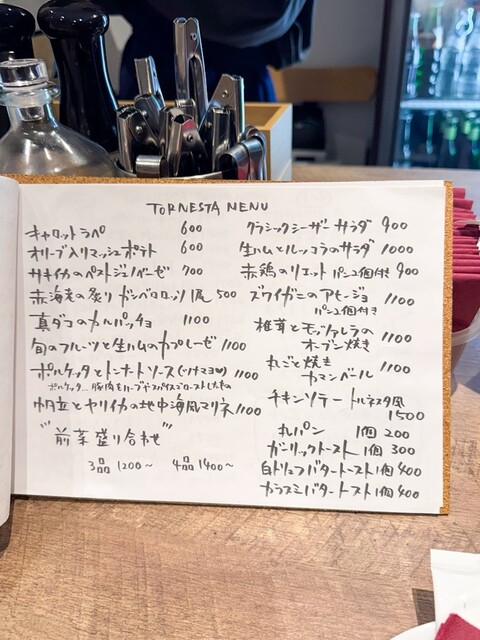 TORNESTA MENU
キャロットラペ 600
オリーブ入りマッシュポテト 600
サキイカのペストジェノベーゼ 700
赤海老の炙り ガンベロロッソ 1尾 500
真ダコのカルパッチョ 1100
旬のフルーツと生ハムのカプレーゼ 1100
ポルケッタとトンナートソース(ツナマヨ) 1100
ポルケッタ… 豚肉をハーブやスパイスでローストしたもの
帆立とヤリイカの地中海風マリネ 1100
"前菜盛り合わせ"
3品 1200〜 4品 1400〜
クラシックシーザーサラダ 900
生ハムとルッコラのサラダ 1000
赤鶏のリエット パン2個付 900
ズワイガニのアヒージョ 1100
パン2個付き
椎茸とモッツァレラの
オーブン焼き 1100
丸ごと焼き
カマンベール 1100
チキンソテー トルネスタ風
1500
丸パン 1個 200
ガーリックトースト 1個 300
白トリュフバタートースト 1個 400
カラスミバタートースト 1個 400